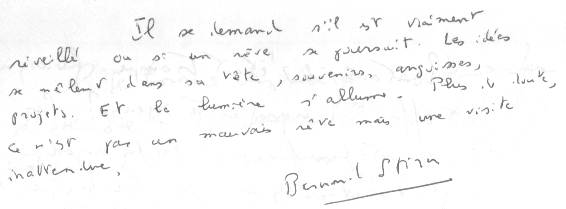 Il se demande s'il est vraiment
réveillé ou si un rêve se poursuit. Les idées
se mêlent dans sa tête, souvenirs, angoisses,
projets. Et la lumière s'allume. Plus de doute,
ce n'est pas un mauvais rêve mais une visite
inattendue.
Bernard Stirn